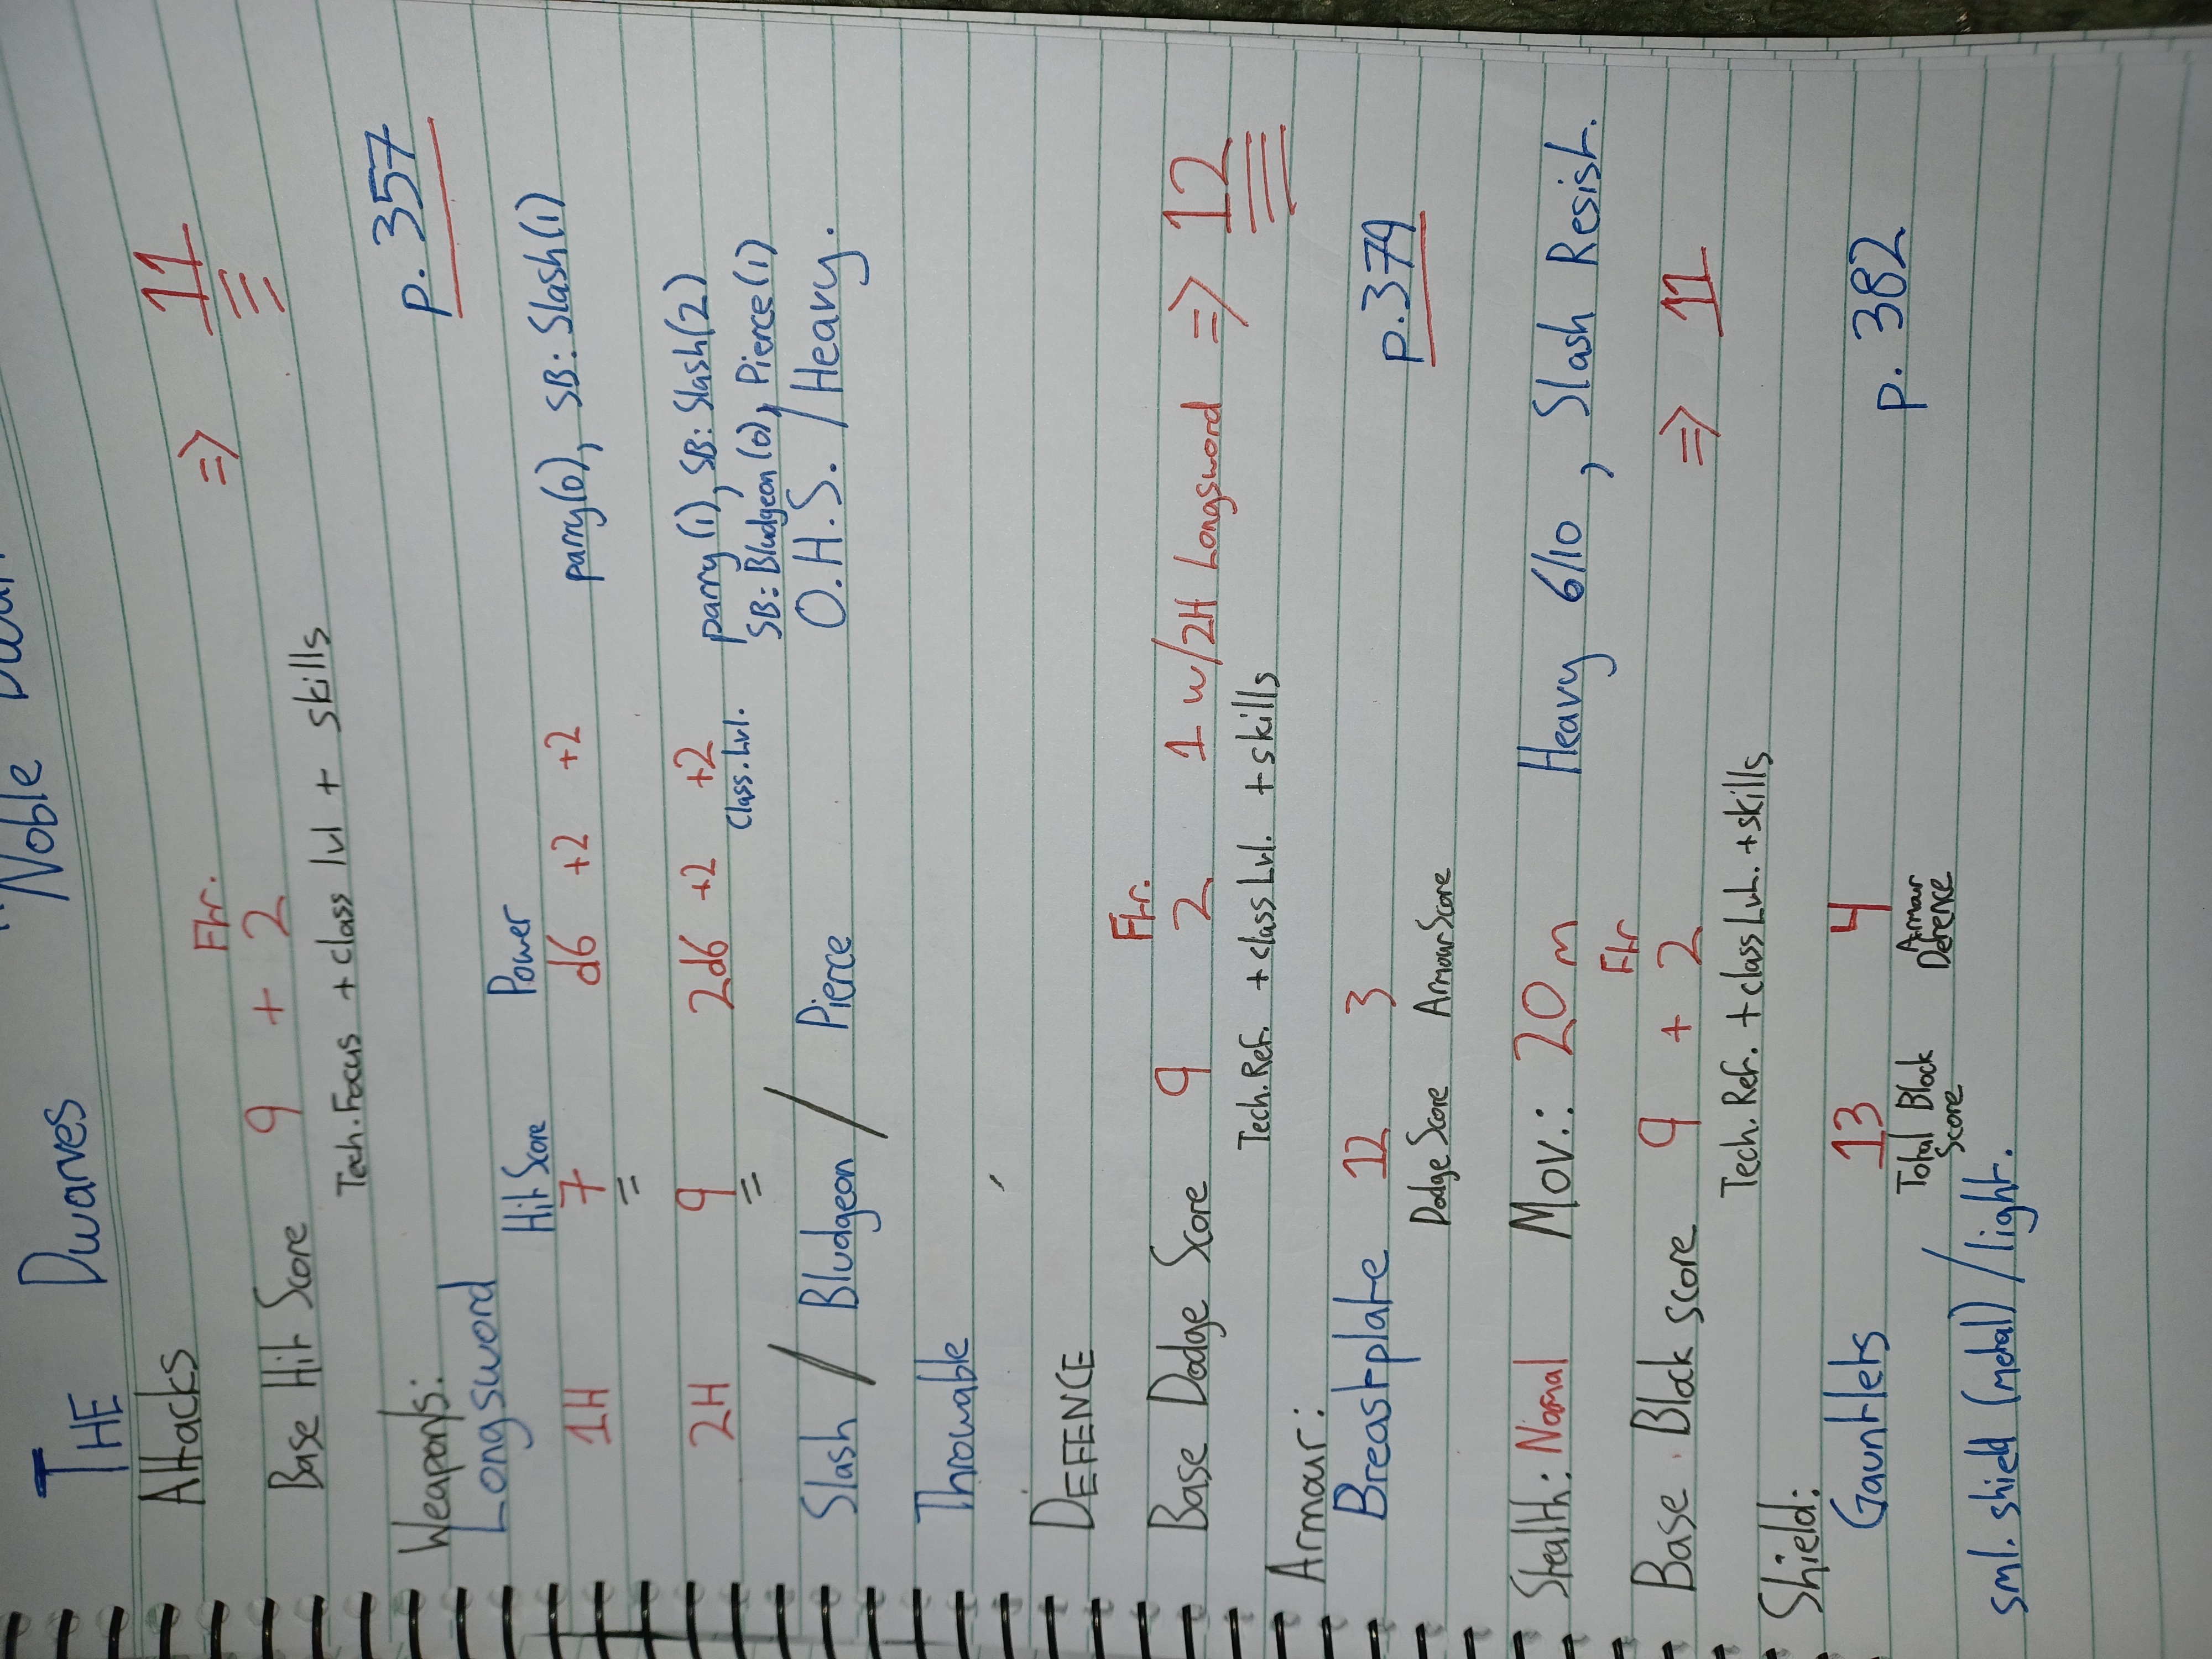 "Noble
THE Dwarves
Attacks
Ftr.
Base Hit Score 9 + 2 => 11
Tech. Focus + class lvl + skills
Weapons: p. 357
Longsword Hit Score Power
1H 7 d6 +2 +2 parry(0), SB: Slash(1)
2H 9 2d6 +2 +2 parry(1), SB: Slash(2)
Class. Lvl. SB: Bludgeon(0), Pierce(1)
Slash / Bludgeon / Pierce O.H.S. / Heavy.
Throwable
DEFENCE
Ftr.
Base Dodge Score 9 2 1 w/2H Longsword => 12
Tech. Ref. + class Lvl. + skills
Armour:
Breastplate 12 3 p. 379
Dodge Score Armour Score
Stealth: Normal Mov.: 20 m Heavy 6/10, Slash Resist.
Ftr
Base Block score 9 + 2 => 11
Tech. Ref. + class Lvl. + skills
Shield:
Gauntlets 13 4 p. 382
Total Block Score Armour Defence
sml. shield (metal) / light.